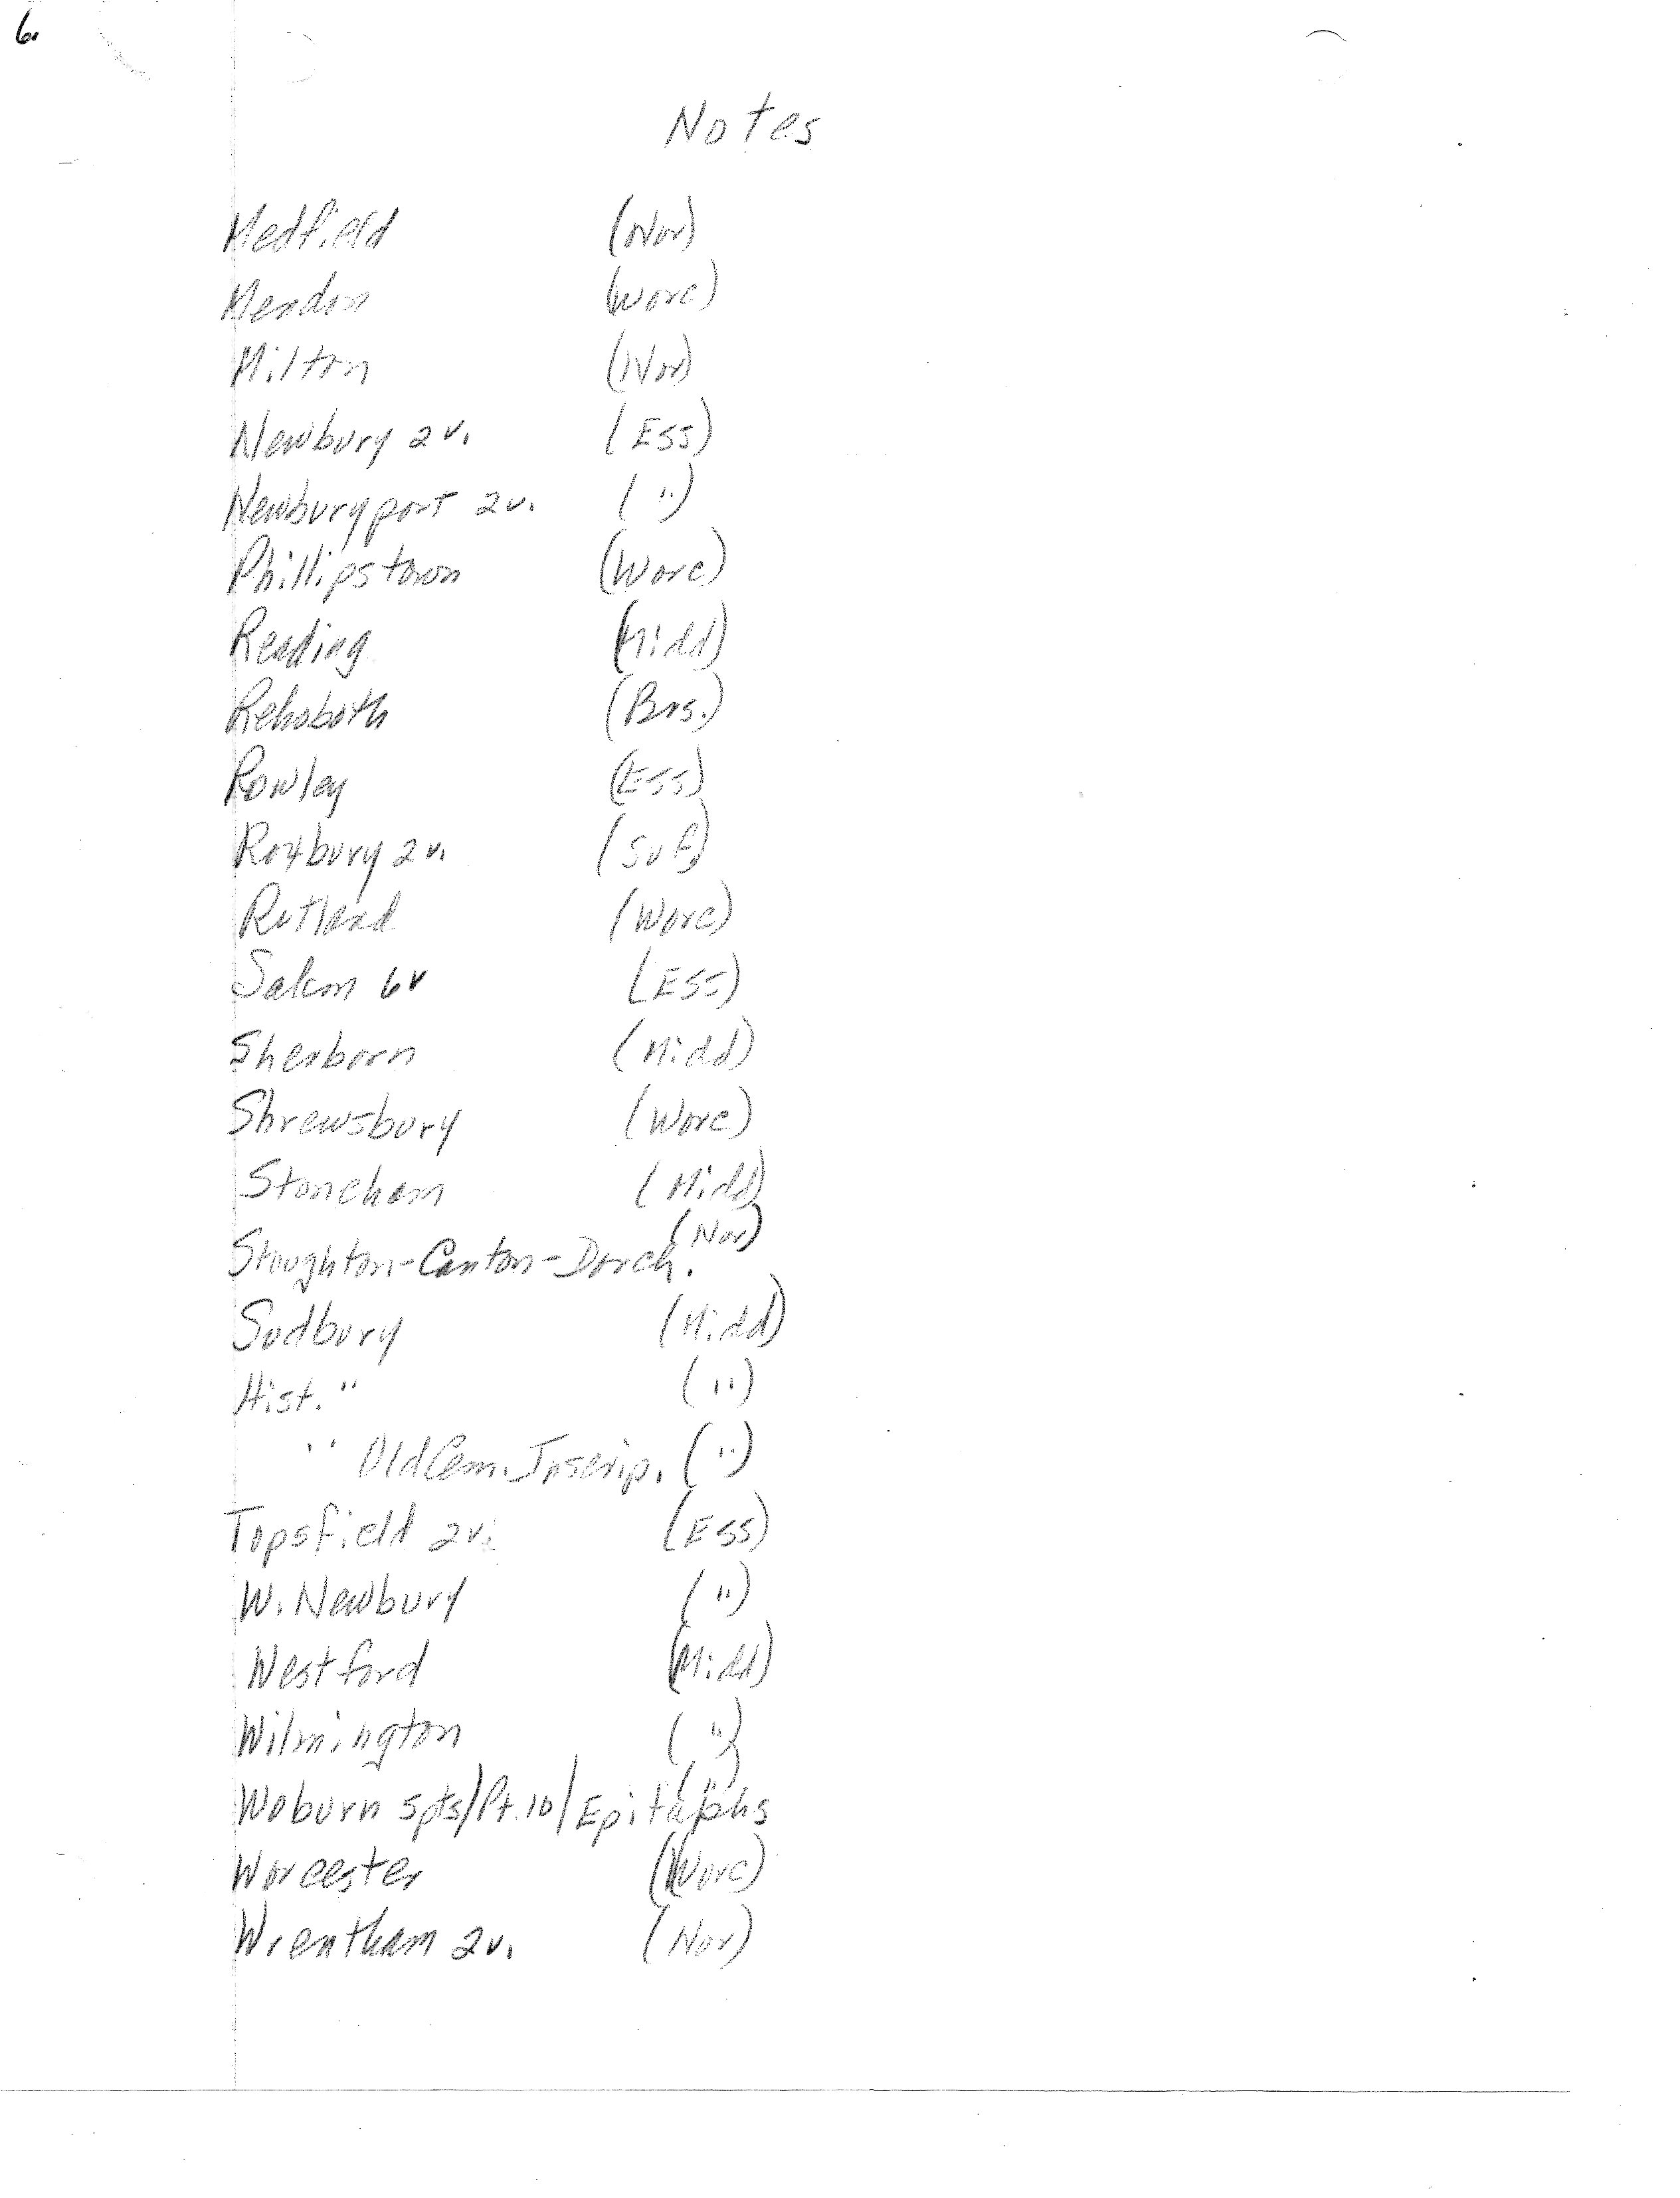 6.
Notes
Medfield (Nor)
Mendon (Worc)
Milton (Nor)
Newbury 2v. (Ess)
Newburyport 2v. (")
Phillipstown (Worc)
Reading (Midd)
Rehoboth (Brs.)
Rowley (Ess)
Roxbury 2v. (Suf)
Rutland (Worc)
Salem 6v (Ess)
Sherborn (Midd)
Shrewsbury (Worc)
Stoneham (Midd)
Stoughton-Canton-Dorch. (Nor)
Sudbury (Midd)
Hist. " (")
" Old Cem. Inscrip. (")
Topsfield 2v. (Ess)
W. Newbury (")
Westford (Midd)
Wilmington (")
Woburn 5pts/Pt.10/Epitaphs (")
Worcester (Worc)
Wrentham 2v. (Nor)